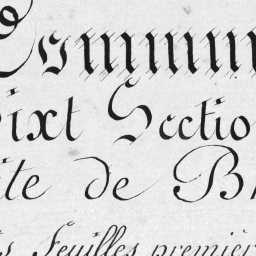 Commun
ixt Sectio
ite de B
s Feuilles premièr